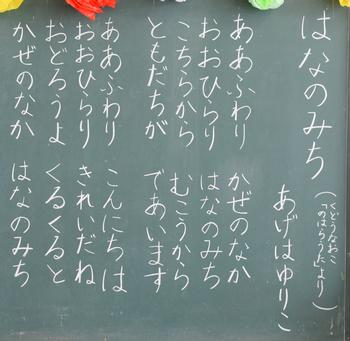 はなのみち
(くどうなおこ
「のはらうた」より)
あげはゆりこ
ああふわり　かぜのなか
おおひらり　はなのみち
こちらから　むこうから
ともだちが　であいます
ああふわり　こんにちは
おおひらり　きれいだね
おどろうよ　くるくると
かぜのなか　はなのみち